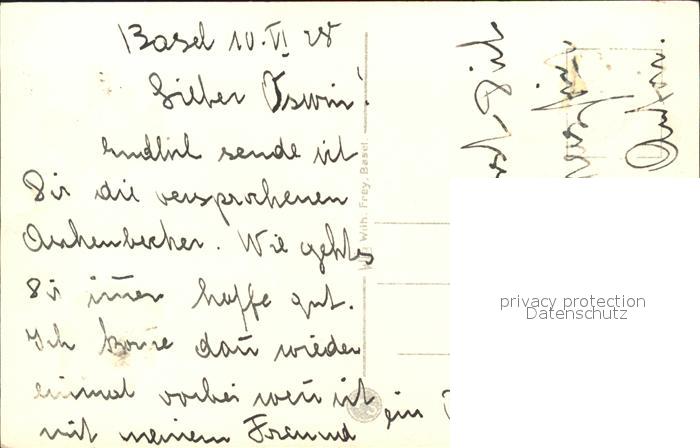 Basel 10. VI 28
Lieber Oswin!
Endlich sende ich
Dir die versprochenen
Aschenbecher. Wie geht es
Dir im̄er hoffe gut.
Ich kom̄e dan̄ wieder
einmal vorbei wen̄ ich
mit meinem Freund
ein
Dich
Wilh. Frey, Basel
privacy protection
Datenschutz